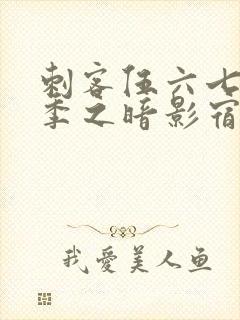 刺客伍六七
季之暗影宿
我爱美人鱼